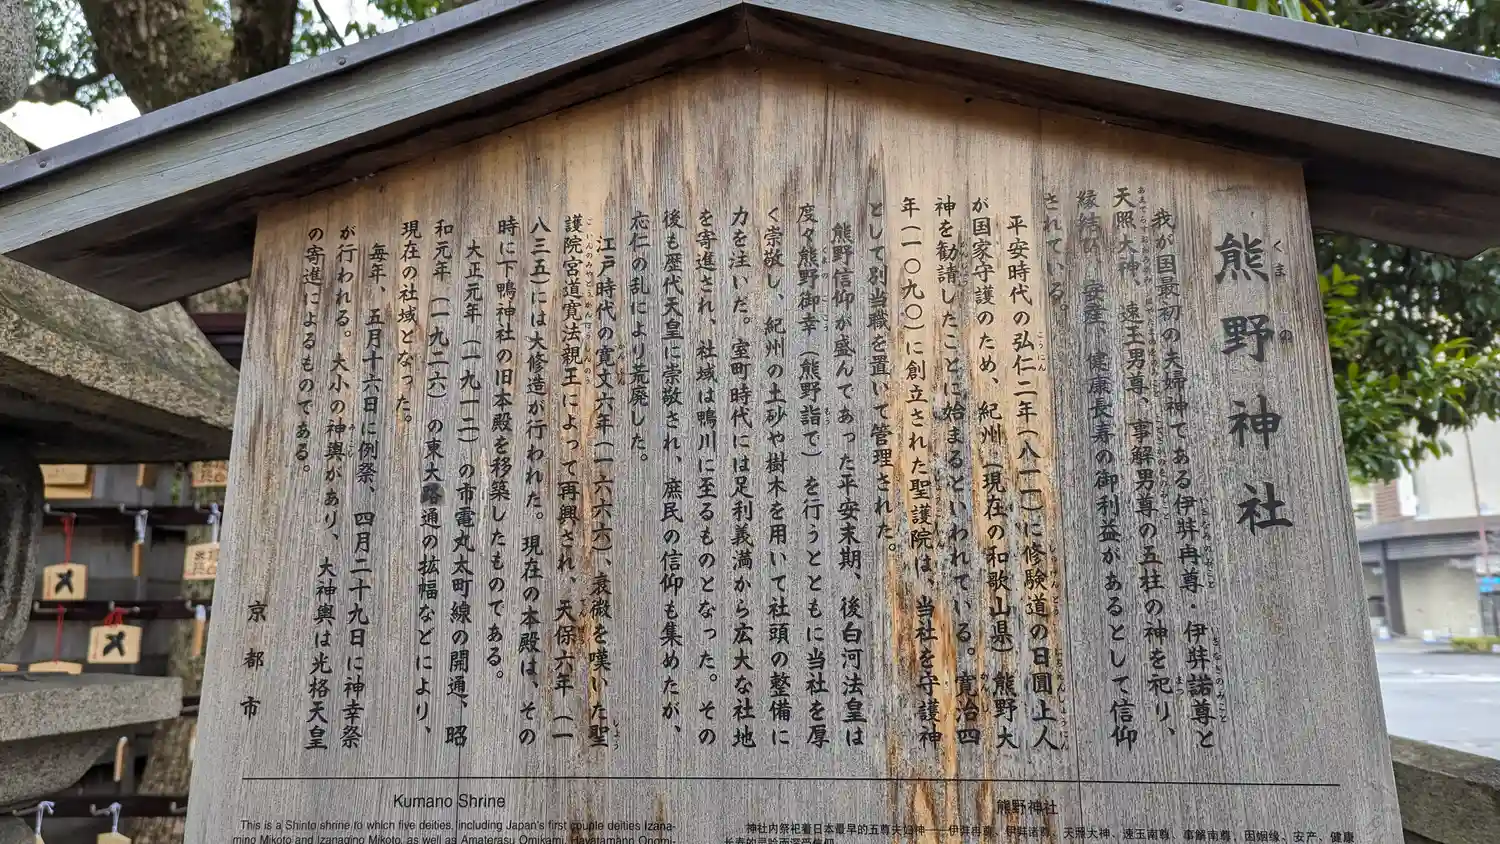 熊野神社
くまの
我が国最初の夫婦神である伊弉冉尊・伊弉諾尊と
天照大神、速玉男尊、事解男尊の五柱の神を祀り、
縁結び、安産、健康長寿の御利益があるとして信仰
されている。
平安時代の弘仁二年(八一一)に修験道の日圓上人
が国家守護のため、紀州(現在の和歌山県)熊野大
神を勧請したことに始まるといわれている。寛治四
年(一〇九〇)に創立された聖護院は、当社を守護神
として別当職を置いて管理された。
熊野信仰が盛んであった平安末期、後白河法皇は
度々熊野御幸(熊野詣で)を行うとともに当社を厚
く崇敬し、紀州の土砂や樹木を用いて社頭の整備に
力を注いだ。室町時代には足利義満から広大な社地
を寄進され、社域は鴨川に至るものとなった。その
後も歴代天皇に崇敬され、庶民の信仰も集めたが、
応仁の乱により荒廃した。
江戸時代の寛文六年(一六六六)、衰微を嘆いた聖
護院宮道寛法親王によって再興され、天保六年(一
八三五)には大修造が行われた。現在の本殿は、その
時に下鴨神社の旧本殿を移築したものである。
大正元年(一九一二)の市電丸太町線の開通、昭
和元年(一九二六)の東大路通の拡幅などにより、
現在の社域となった。
毎年、五月十六日に例祭、四月二十九日に神幸祭
が行われる。大小の神輿があり、大神輿は光格天皇
の寄進によるものである。
京都市
Kumano Shrine
This is a Shinto shrine to which five deities, including Japan's first couple deities Izana-
mino Mikoto and Izanagino Mikoto, as well as Amaterasu Omikami, Hayatamano Onomi-
熊野神社
神社内祭祀着日本最早的五尊夫妇神——伊弉冉尊、伊弉诸尊、天照大神、速玉南尊、事解南尊，因姻缘、安产、健康